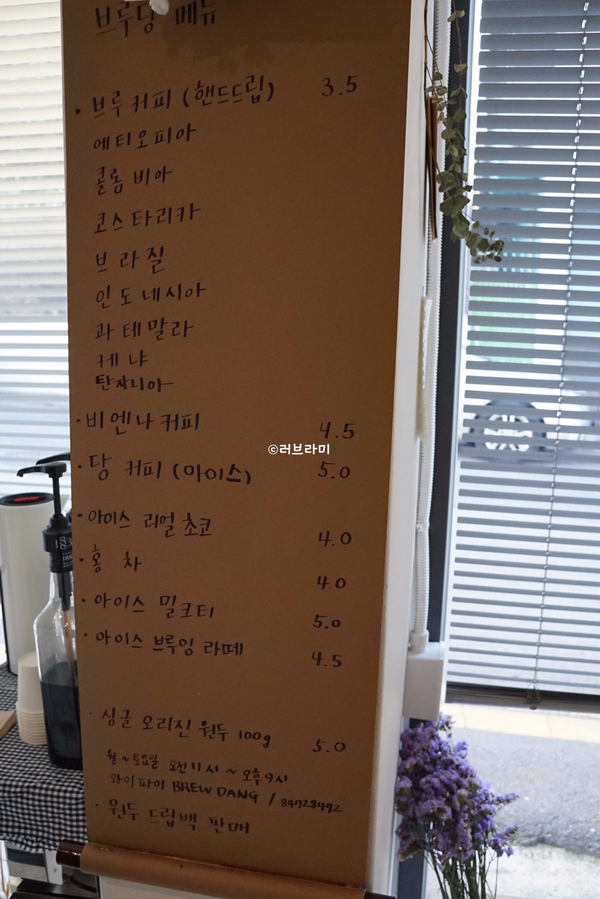 브루당 메뉴
· 브루커피 (핸드드립) 3.5
에티오피아
콜롬비아
코스타리카
브라질
인도네시아
과테말라
케냐
탄자니아
· 비엔나커피 4.5
· 당 커피 (아이스) 5.0
· 아이스 리얼초코 4.0
· 홍 차 4.0
· 아이스 밀크티 5.0
· 아이스 브루잉 라떼 4.5
· 싱글 오리진 원두 100g 5.0
월~토요일 오전11시~오후9시
와이파이 BREW DANG /
· 원두 드립백 판매
©러브라미
183